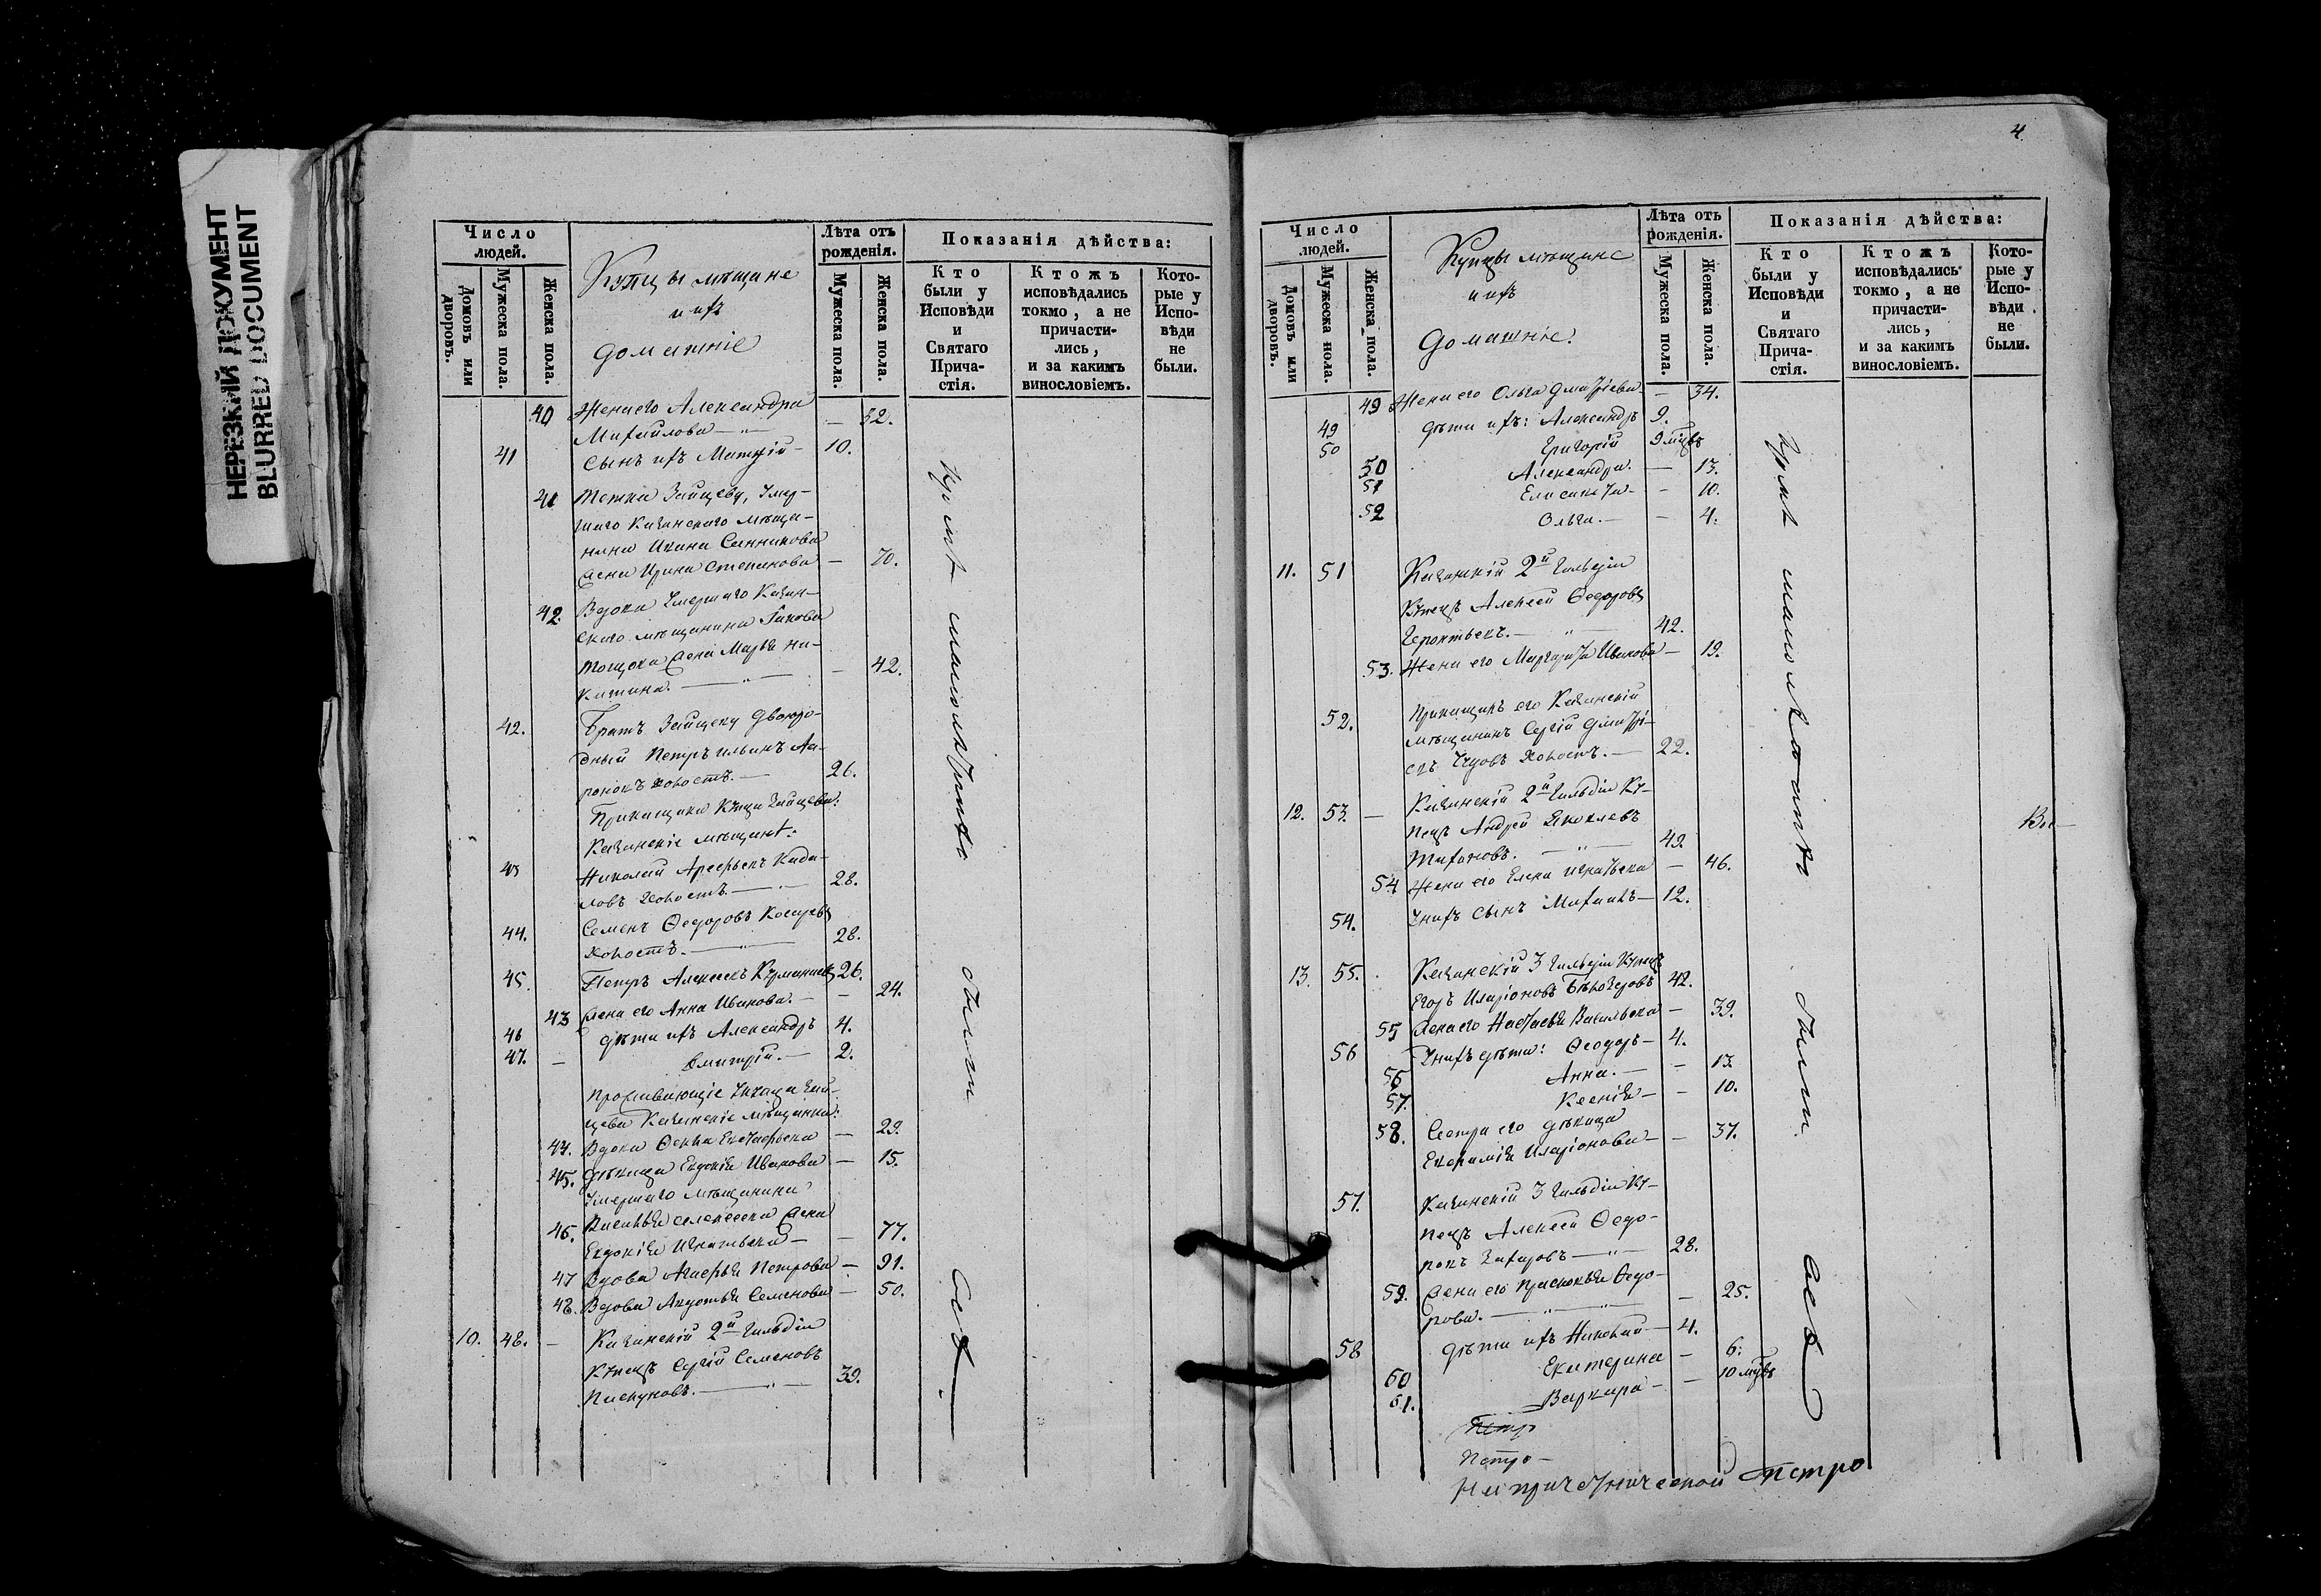 НЕРЕЗКИЙ ДОКУМЕНТ
BLURRED DOCUMENT
Число людей.
Домовъ или дворовъ.
Мужеска пола.
Женска пола.
Купцы мѣщане
и ихъ
домашніе
Лѣта отъ рожденія.
Мужеска пола.
Женска пола.
Показанія дѣйства:
Кто были у Исповѣди и Святаго Прича-стія.
Ктожъ исповѣдались токмо, а не причасти-лись, и за какимъ винословіемъ.
Кото-рые у Испо-вѣди не были.
40 Жена его Александра
Михайлова — 32.
41 Сынъ ихъ Матѳій — 10.
41 Тетка Зайцеву, умер-
шаго Казанскаго мѣща-
нина Ивана Санникова
жена Ирина Степанова — 70.
42. Вдова умершаго Казан-
скаго мѣщанина Іакова
жена Марья Ни-
китина. — 42.
42. Братъ Зайцеву двоюро-
дный Петръ Ильинъ
холостъ. — 26.
Прикащики Купца Зайцева:
Казанскіе мѣщане:
43 Николай
холостъ — 28.
44. Семенъ Ѳедоровъ
холостъ. — 28.
45. Петръ Алексѣевъ 26.
43 жена его Анна Иванова. — 24.
46 дѣти ихъ Александръ 4.
47. — Дмитрій. — 2.
Проживающіе у купца Зай-
цева Казанскіе мѣщанки:
44. Вдова Ѳекла — 29.
45. дѣвица Евдокія Иванова — 15.
умершаго мѣщанина
46. Василья Алексѣева жена
Евдокія Игнатьева — 77.
47 Вдова Агаѳья Петрова — 91.
48. Вдова Авдотья Семенова — 50.
10. 48. — Казанскій 2й гильдіи
Купецъ Сергій Семеновъ
Пискуновъ. — 39.
были
всѣ
4
Число людей.
Домовъ или дворовъ.
Мужеска пола.
Женска пола.
Купцы мѣщане
и ихъ
домашніе.
Лѣта отъ рожденія.
Мужеска пола.
Женска пола.
Показанія дѣйства:
Кто были у Исповѣди и Святаго Прича-стія.
Ктожъ исповѣдались токмо, а не причасти-лись, и за какимъ винословіемъ.
Кото-рые у Испо-вѣди не были.
49 Жена его Ольга Дмитріева — 34.
49 дѣти ихъ: Александръ 9.
50 Григорій 9 мцвъ
50 Александра. — 13.
51 Елисавета — 10.
52 Ольга. — 4.
11. 51 Казанскій 2й гильдіи
Купецъ Алексѣй Ѳедоровъ
42.
53. Жена его Маргарита Иванова — 19.
52. Прикащикъ его Казанскій
мѣщанинъ Сергій Дмитрі-
евъ холостъ. — 22.
12. 53. — Казанскій 2й гильдіи Ку-
пецъ Андрей Яковлевъ
Тихановъ. — 49.
54 Жена его Елена Игнатьева — 46.
54. У нихъ сынъ Михаилъ — 12.
13. 55. Казанскій 3 гильдіи Купецъ
Егоръ Иларіоновъ Бѣлозеровъ 42.
55 жена его Настасья Васильева — 39.
56 У нихъ дѣти: Ѳеодоръ — 4.
56 Анна. — 13.
57. Ксенія — 10.
58. Сестра его дѣвица
Евѳимія Иларіонова — 37.
57. Казанскій 3 гильдіи Ку-
пецъ Алексѣй Ѳедо-
ровъ Захаровъ — 28.
59. Жена его Прасковья Ѳедо-
рова. — 25.
58 дѣти ихъ Николай — 4.
60 Екатерина — 6.
61. Варвара — 10 мцвъ
были.
всѣ
Петр
Петро-
Петро